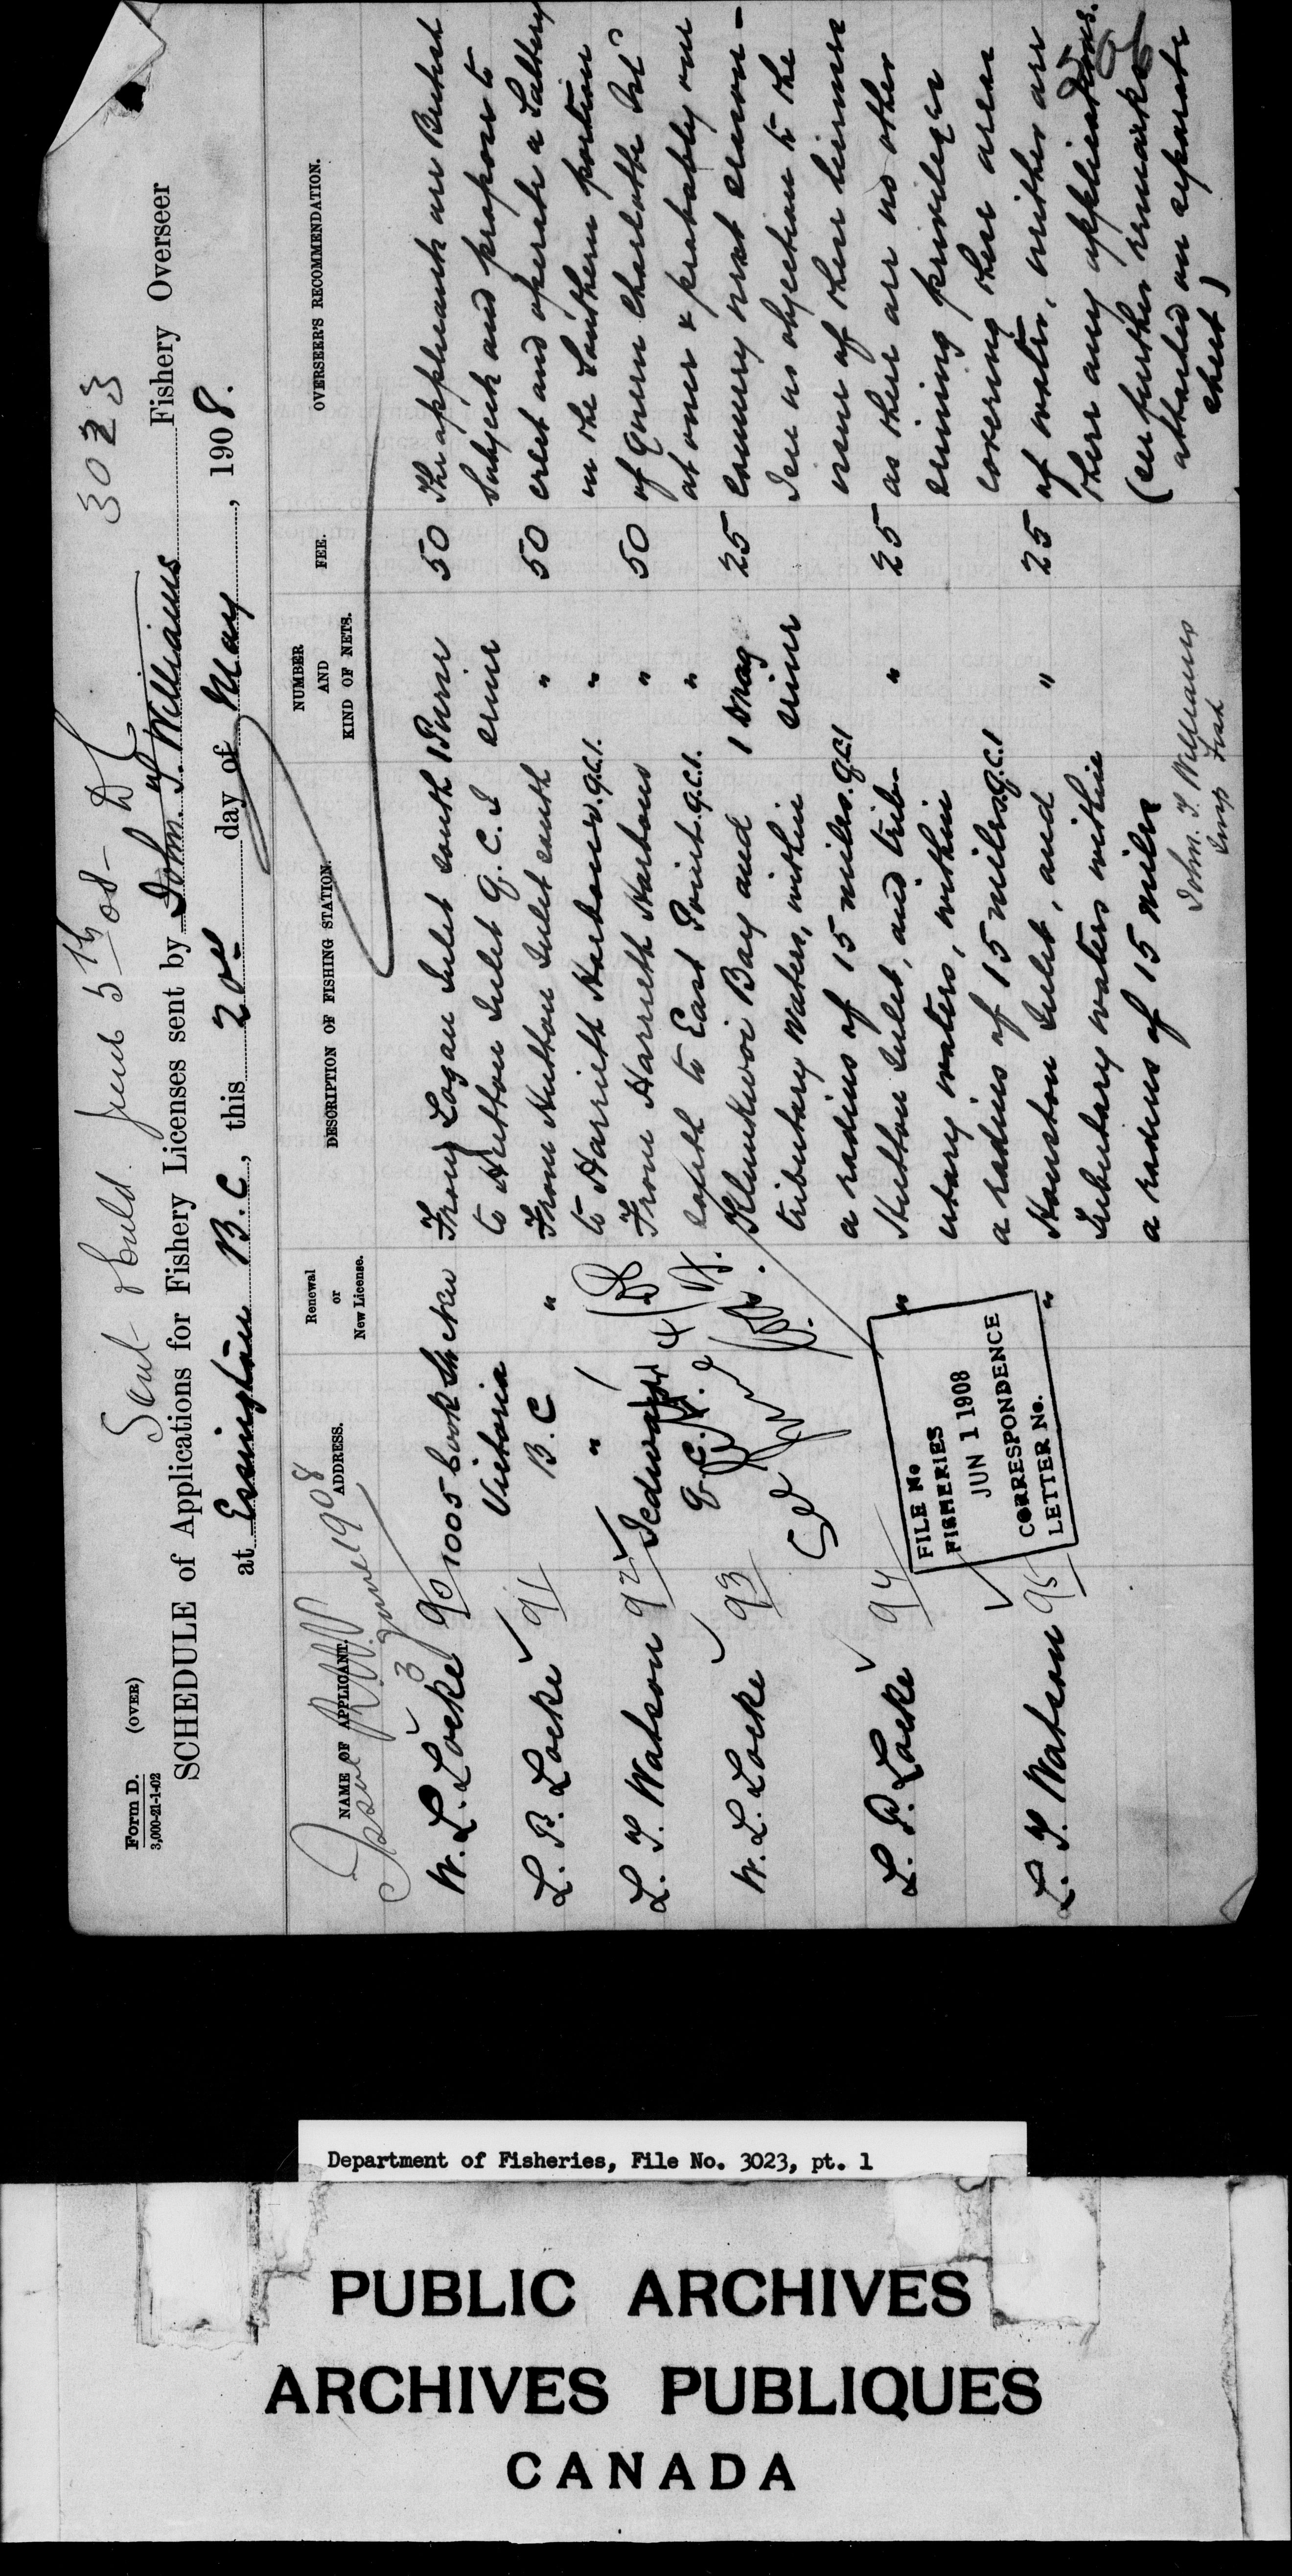 Form D.
3,000-21-1-02
(OVER)
3023
Sent Build. June 5th 08 -
SCHEDULE of Applications for Fishery Licenses sent by John T. Williams Fishery Overseer
at Essington B.C, this 20th day of May, 1908.
NAME OF APPLICANT.
ADDRESS.
Renewal
or
New License.
DESCRIPTION OF FISHING STATION.
NUMBER
AND
KIND OF NETS.
FEE.
OVERSEER'S RECOMMENDATION.
3 June 1908
W. L. Locke 90 1005 Cook St New From Logan Inlet south 1 Purse 50
Victoria to Hutton Inlet Q. C. I seine
L. P. Locke 91 B. C " From Hutton Inlet south " 50
" to Harriett Harbour Q.C.I. "
L. T. Watson 92 Jedway From Harrieth Harbour " 50
Q.C.I. south to East Point Q.C.I. "
W. L. Locke 93 Klunkwoi Bay and 1 Drag 25
tributary waters, within seine
a radius of 15 miles. Q.C.I
L. P. Locke 94 " Hutton Inlet, and trib- " 25
utary waters, within
a radius of 15 miles. Q.C.I
L. T. Watson 95 " Houston Inlet, and " 25
Tributary waters within
a radius of 15 miles
The applicants are British
Subjects and propose to
erect and operate a Saltery
in the Southern portion
of Queen Charlotte Isl
at once & probably one
cannery next season -
I see no objection to the
issue of these licenses
as there are no other
seining privileges
covering these areas
of water, neither are
there any applications.
(see further remarks
attached on separate
sheet)
John. T. Williams
Insp Fish
FILE No
FISHERIES
JUN 1 1908
CORRESPONDENCE
LETTER No.
Department of Fisheries, File No. 3023, pt. 1
PUBLIC ARCHIVES
ARCHIVES PUBLIQUES
CANADA